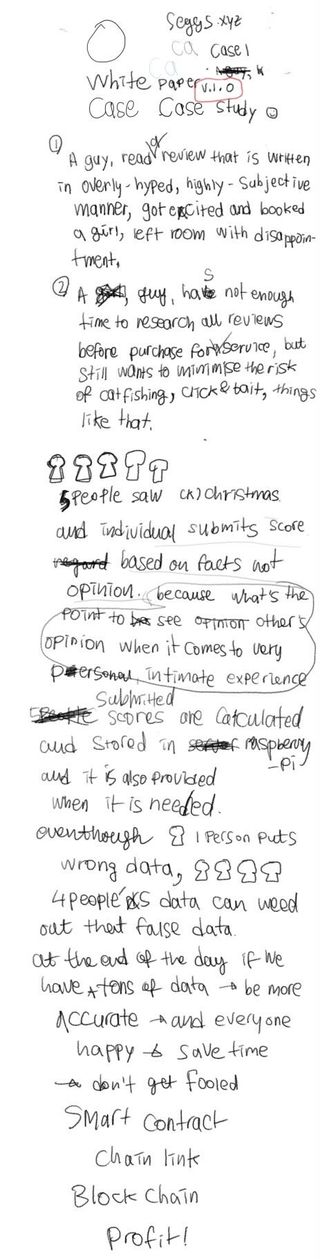 Seggs.xyz
ca case 1
ca
White Paper v.1.0
Case Case study
① A guy, read a review that is written
in overly-hyped, highly-subjective
manner, got excited and booked
a girl, left room with disappoin-
tment.
② A guy, has not enough
time to research all reviews
before purchase for service, but
still wants to minimise the risk
of catfishing, click & bait, things
like that.
5 People saw (K) Christmas
and individual submits score
regard based on facts not
opinion. because what's the
point to see opinion other's
opinion when it comes to very
personal, intimate experience
Submitted
people scores are calculated
and stored in raspberry
-pi
and it is also provided
when it is needed.
eventhough 1 person puts
wrong data,
4 people's data can weed
out that false data.
at the end of the day if we
have tons of data → be more
Accurate → and everyone
happy & save time
→ don't get fooled
Smart contract
Chain link
Block chain
Profit!